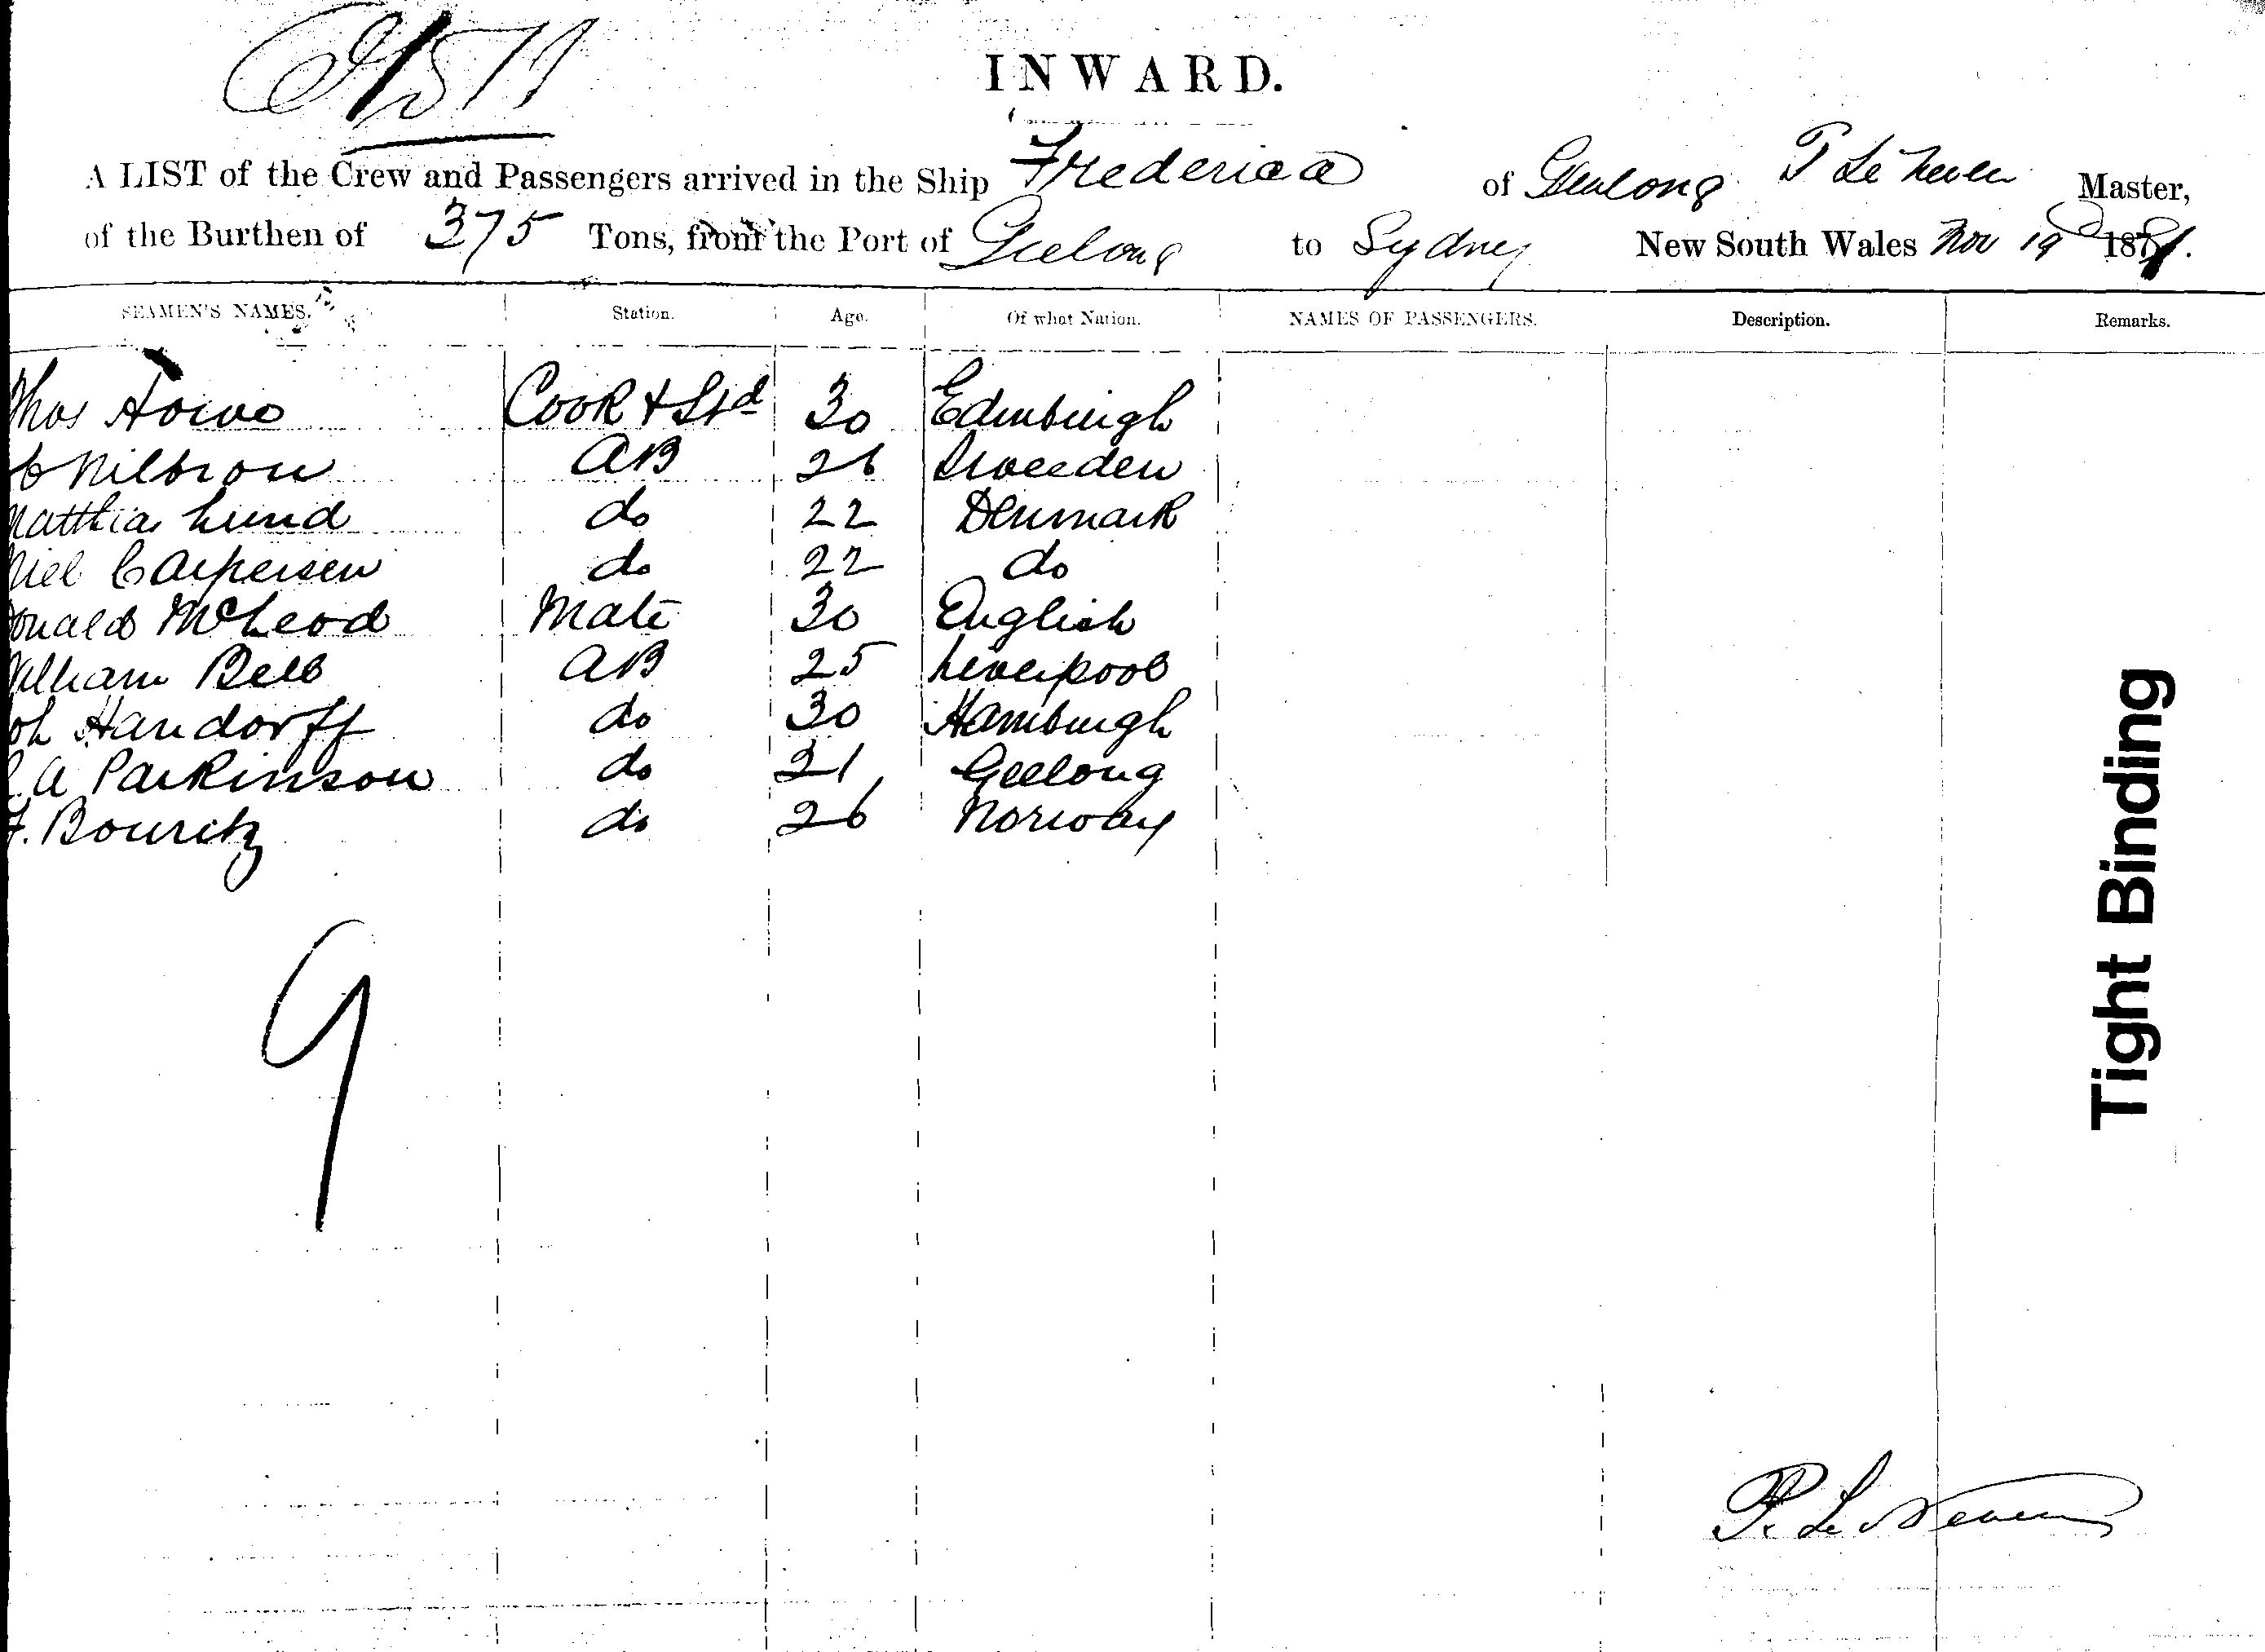 INWARD.
A LIST of the Crew and Passengers arrived in the Ship Frederica of Geelong P Le Neven Master,
of the Burthen of 375 Tons, from the Port of Geelong to Sydney New South Wales Nov 19 187
SEAMEN'S NAMES. Station. Age. Of what Nation. NAMES OF PASSENGERS. Description. Remarks.
Thos Howe Cook & Std 30 Edinburgh
Nilsson AB 26 Sweeden
Matthias Lund do 22 Denmark
Niel Carpersen do 22 do
Donald McLeod Mate 30 English
William Bell AB 25 Liverpool
Joh Handorff do 30 Hamburgh
A Parkinson do 21 Geelong
F. Bouritz do 26 Norway
9
Tight Binding
P. Le Neven